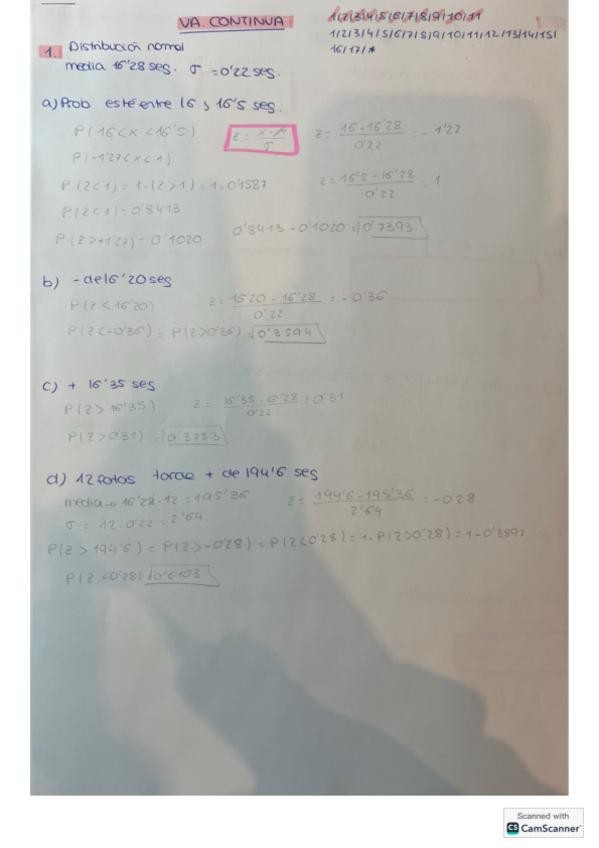 VA. CONTINUA
1/2/3/4/5/6/7/8/9/10/11
1/2/3/4/5/6/7/8/9/10/11/12/13/14/15/
16/17/*
1. Distribución normal
media 16'28 ses. σ = 0'22 ses.
a) Prob esté entre 16 y 16'5 seg.
P(16<x<16'5) z = x-μ/σ z = 16-16'28/0'22 = -1'27
P(-1'27<x<1)
P(z<1) = 1-(z>1) = 1-0'1587 z = 16'5-16'28/0'22 = 1
P(z<1) = 0'8413
P(z>+1'27) = 0'1020 0'8413-0'1020 = 0'7393
b) - de 16'20 seg
P(z<16'20) z = 16'20-16'28/0'22 = -0'36
P(z<-0'36) = P(z>0'36) = 0'3594
c) + 16'35 ses
P(z>16'35) z = 16'35-16'28/0'22 = 0'31
P(z>0'31) = 0'3783
d) 12 fotos tarde + de 194'6 seg
media → 16'28·12 = 195'36 z = 194'6-195'36/2'64 = -0'28
σ = 12·0'22 = 2'64
P(z>194'6) = P(z>-0'28) = P(z<0'28) = 1-P(z>0'28) = 1-0'3897
P(z<0'28) = 0'6103
Scanned with
CS CamScanner